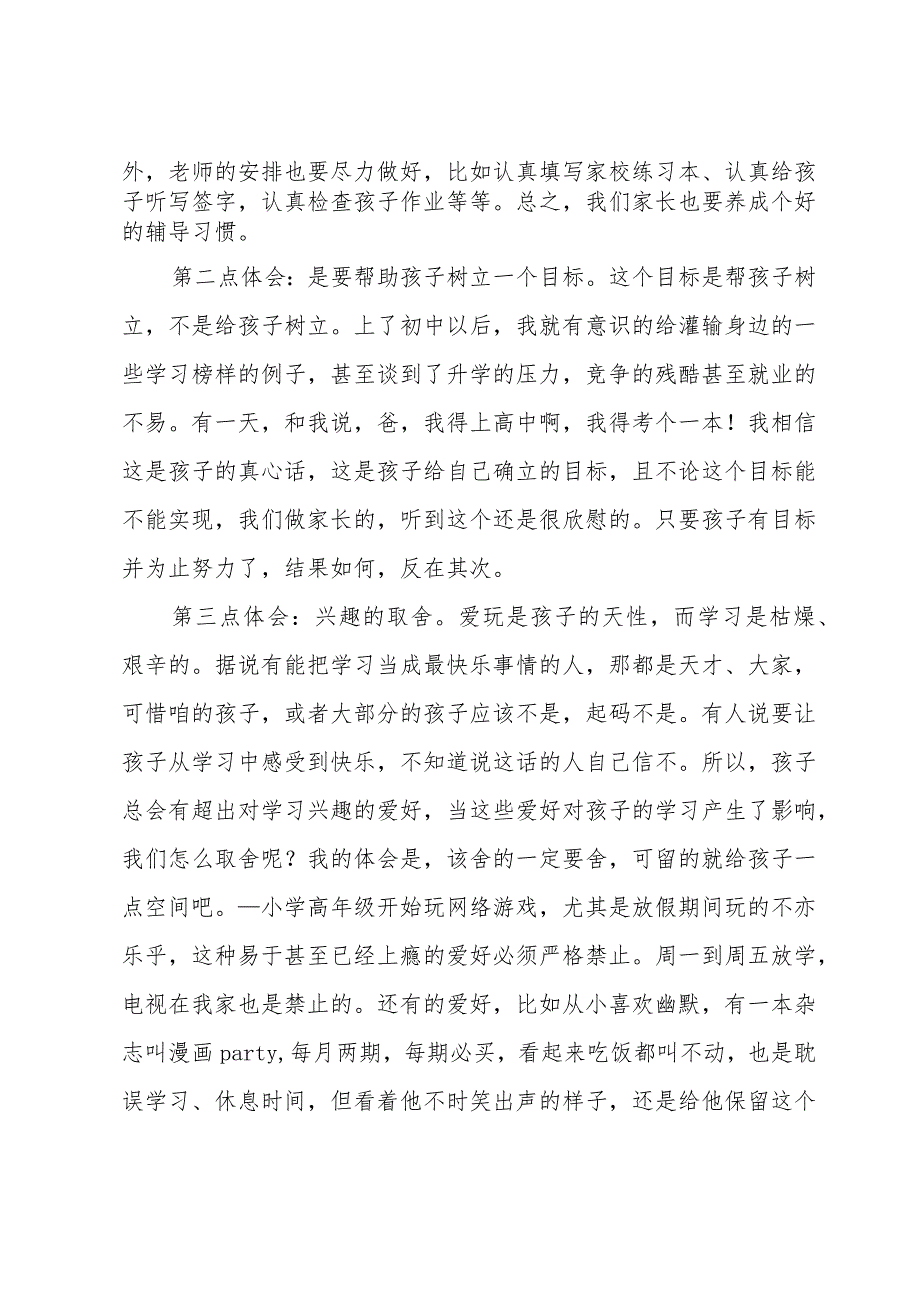 外，老师的安排也要尽力做好，比如认真填写家校练习本、认真给孩
子听写签字，认真检查孩子作业等等。总之，我们家长也要养成个好
的辅导习惯。
第二点体会：是要帮助孩子树立一个目标。这个目标是帮孩子树
立，不是给孩子树立。上了初中以后，我就有意识的给灌输身边的一
些学习榜样的例子，甚至谈到了升学的压力，竞争的残酷甚至就业的
不易。有一天，和我说，爸，我得上高中啊，我得考个一本！我相信
这是孩子的真心话，这是孩子给自己确立的目标，且不论这个目标能
不能实现，我们做家长的，听到这个还是很欣慰的。只要孩子有目标
并为止努力了，结果如何，反在其次。
第三点体会：兴趣的取舍。爱玩是孩子的天性，而学习是枯燥、
艰辛的。据说有能把学习当成最快乐事情的人，那都是天才、大家，
可惜咱的孩子，或者大部分的孩子应该不是，起码不是。有人说要让
孩子从学习中感受到快乐，不知道说这话的人自己信不。所以，孩子
总会有超出对学习兴趣的爱好，当这些爱好对孩子的学习产生了影响，
我们怎么取舍呢？我的体会是，该舍的一定要舍，可留的就给孩子一
点空间吧。—小学高年级开始玩网络游戏，尤其是放假期间玩的不亦
乐乎，这种易于甚至已经上瘾的爱好必须严格禁止。周一到周五放学，
电视在我家也是禁止的。还有的爱好，比如从小喜欢幽默，有一本杂
志叫漫画party,每月两期，每期必买，看起来吃饭都叫不动，也是耽
误学习、休息时间，但看着他不时笑出声的样子，还是给他保留这个